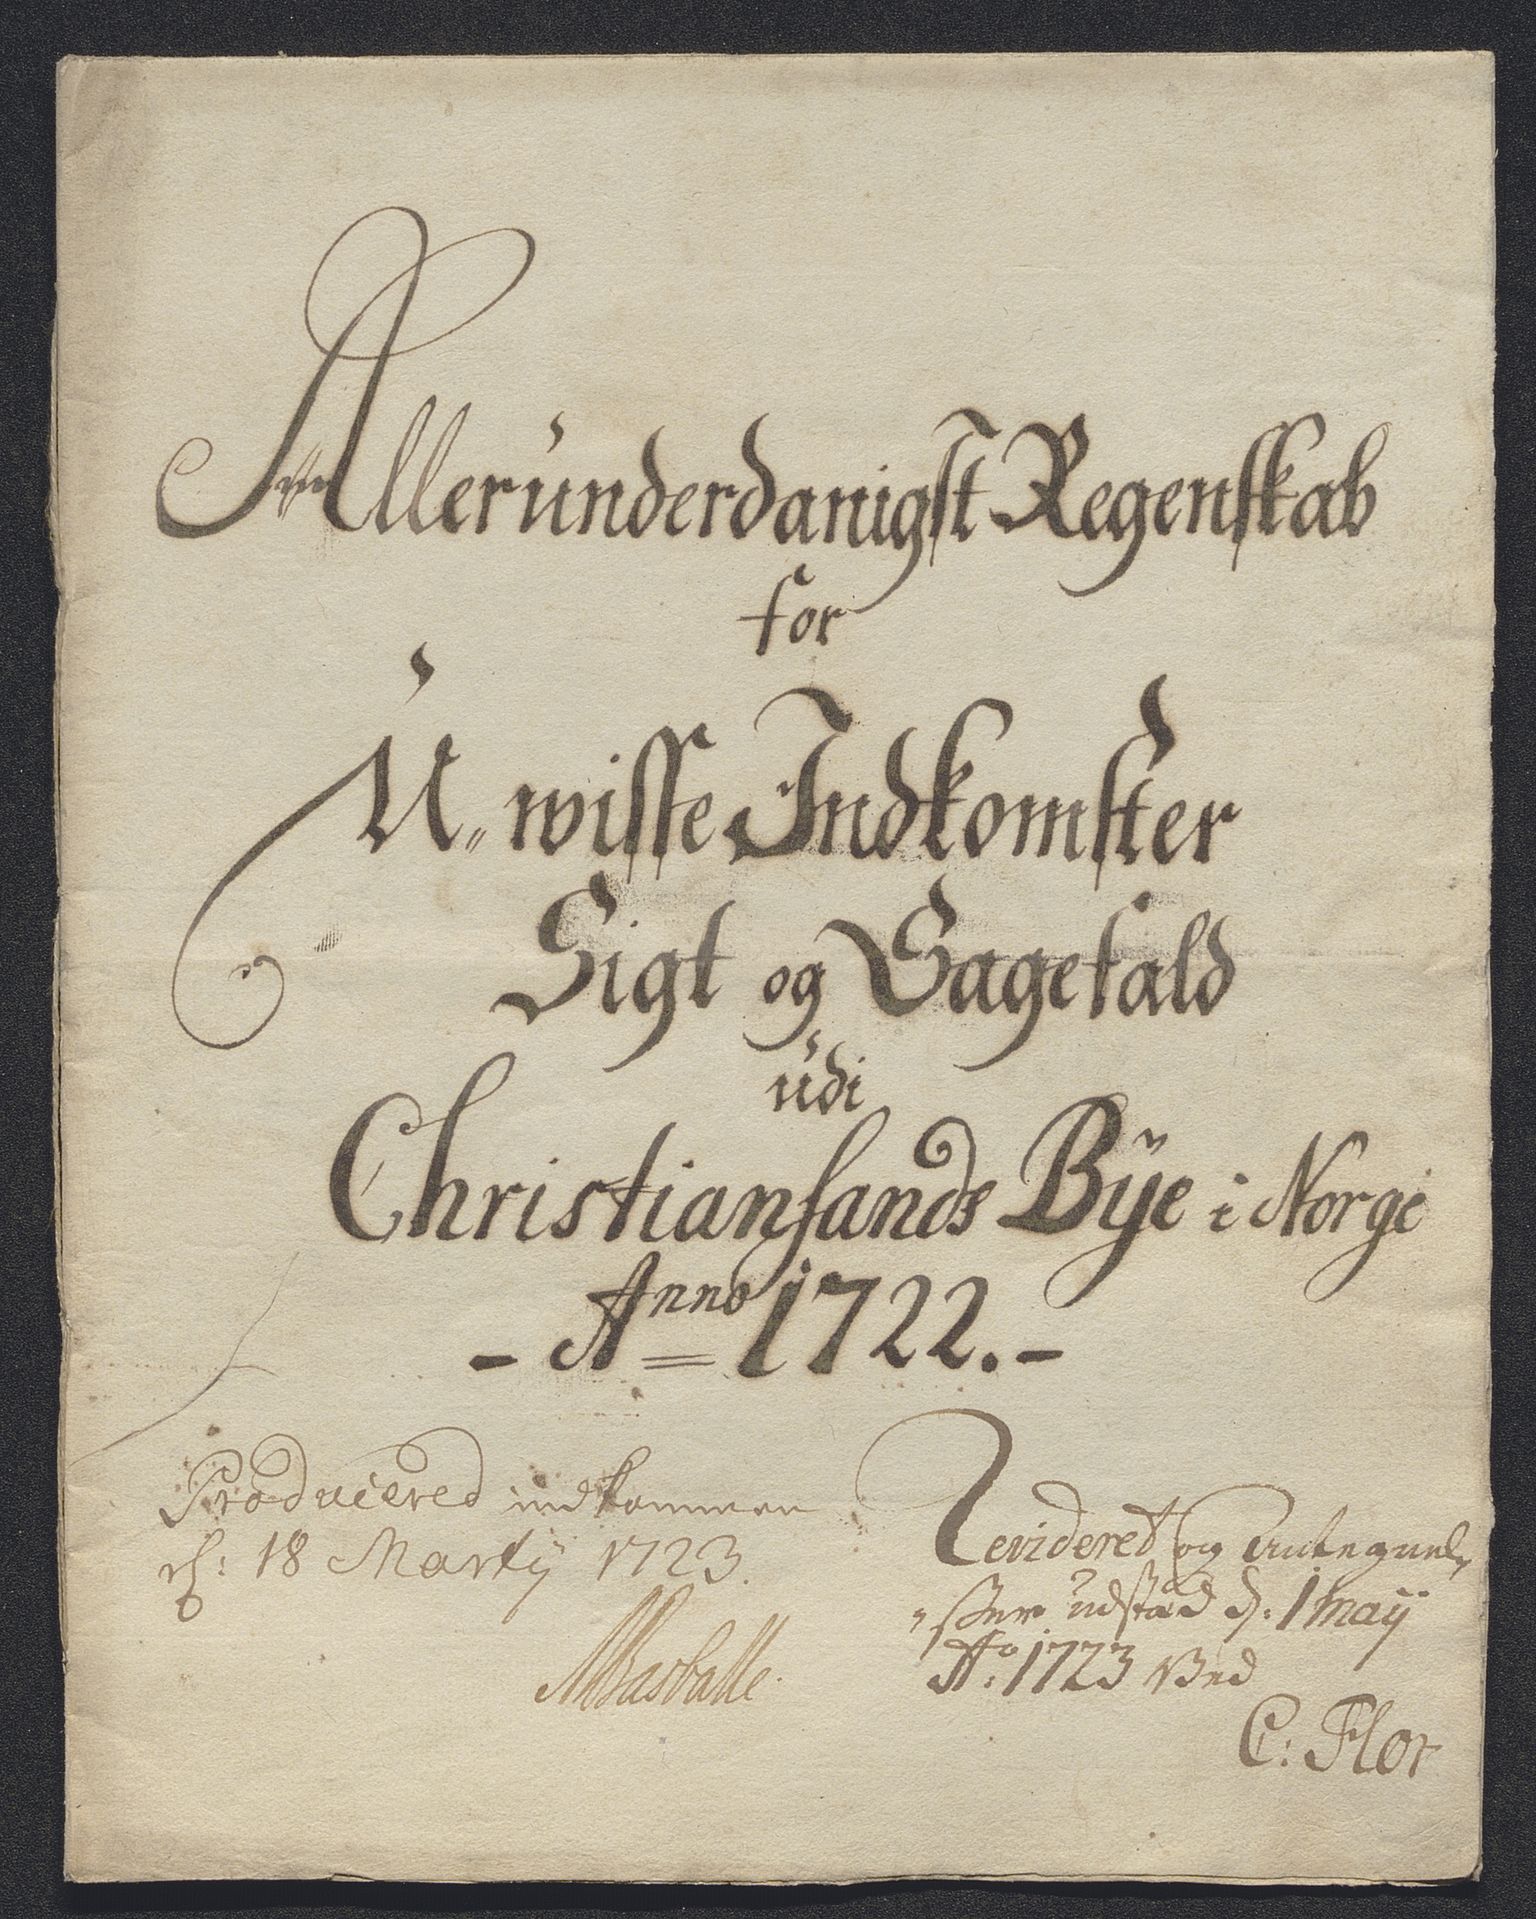 Alleründerdanigst Regenskab
for
U„ wisse Indkomster
Sigt og Sagefald
üdi
Christiansands Bÿe i Norge
- Anno 1722. -
Producered indkommen
d: 18 Martij 1723.
Revideret og Antegnel„
„ßer udstæd d: 1 maij
Ao: 1723 Ved
C: Flor